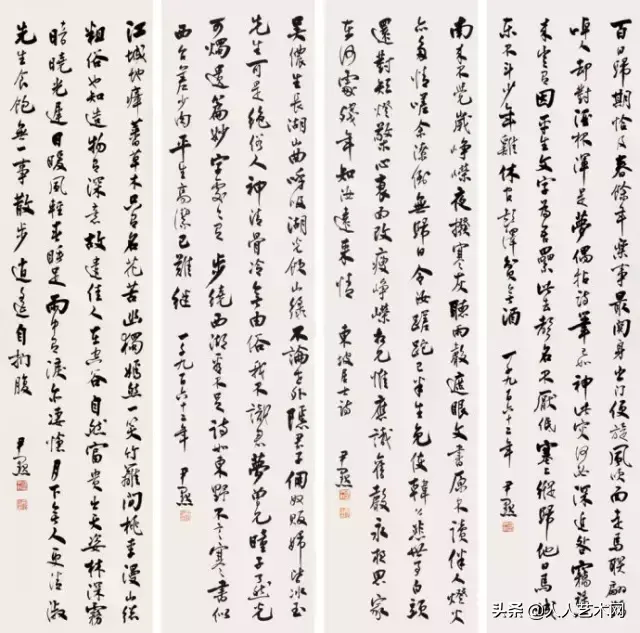 百日歸期恰及春餘年樂事最關身出門便旋風吹面走馬聯翩鵲
啅人卻對酒杯渾是夢偶拈詩筆已如神此災何必深追咎竊祿從
來豈有因平生文字為吾累此去聲名不厭低塞上縱歸他日馬城
東不斗少年雞休官彭澤貧無酒 一千九百六十二年 尹默
南來不覺歲崢嶸夜撥寒灰聽雨聲遮眼文書原不讀伴人燈火
亦多情嗟余潦倒無歸日令汝蹉跎已半生免使韓公悲世事白頭
還對短燈檠心衰面改瘦崢嶸相見惟應識舊聲永夜思家
在何處殘年知汝遠來情 東坡居士詩 尹默
吳儂生長湖山曲呼吸湖光飲山綠不論世外隱君子傭奴販婦皆冰玉
先生可是絕俗人神清骨冷無由俗我不識君夢曾見瞳子瞭然光
可燭遺篇妙字處處有步繞西湖看不足詩如東野不言寒書似
西臺差少肉平生高潔已難繼 一千九百六十二年 尹默
江城地瘴蕃草木只有名花苦幽獨嫣然一笑竹籬間桃李漫山總
粗俗也知造物有深意故遣佳人在空谷自然富貴出天姿林深霧
暗曉光遲日暖風輕春睡足雨中有淚亦悽愴月下無人更清淑
先生食飽無一事散步逍遙自捫腹 尹默
头条 @人人艺术网